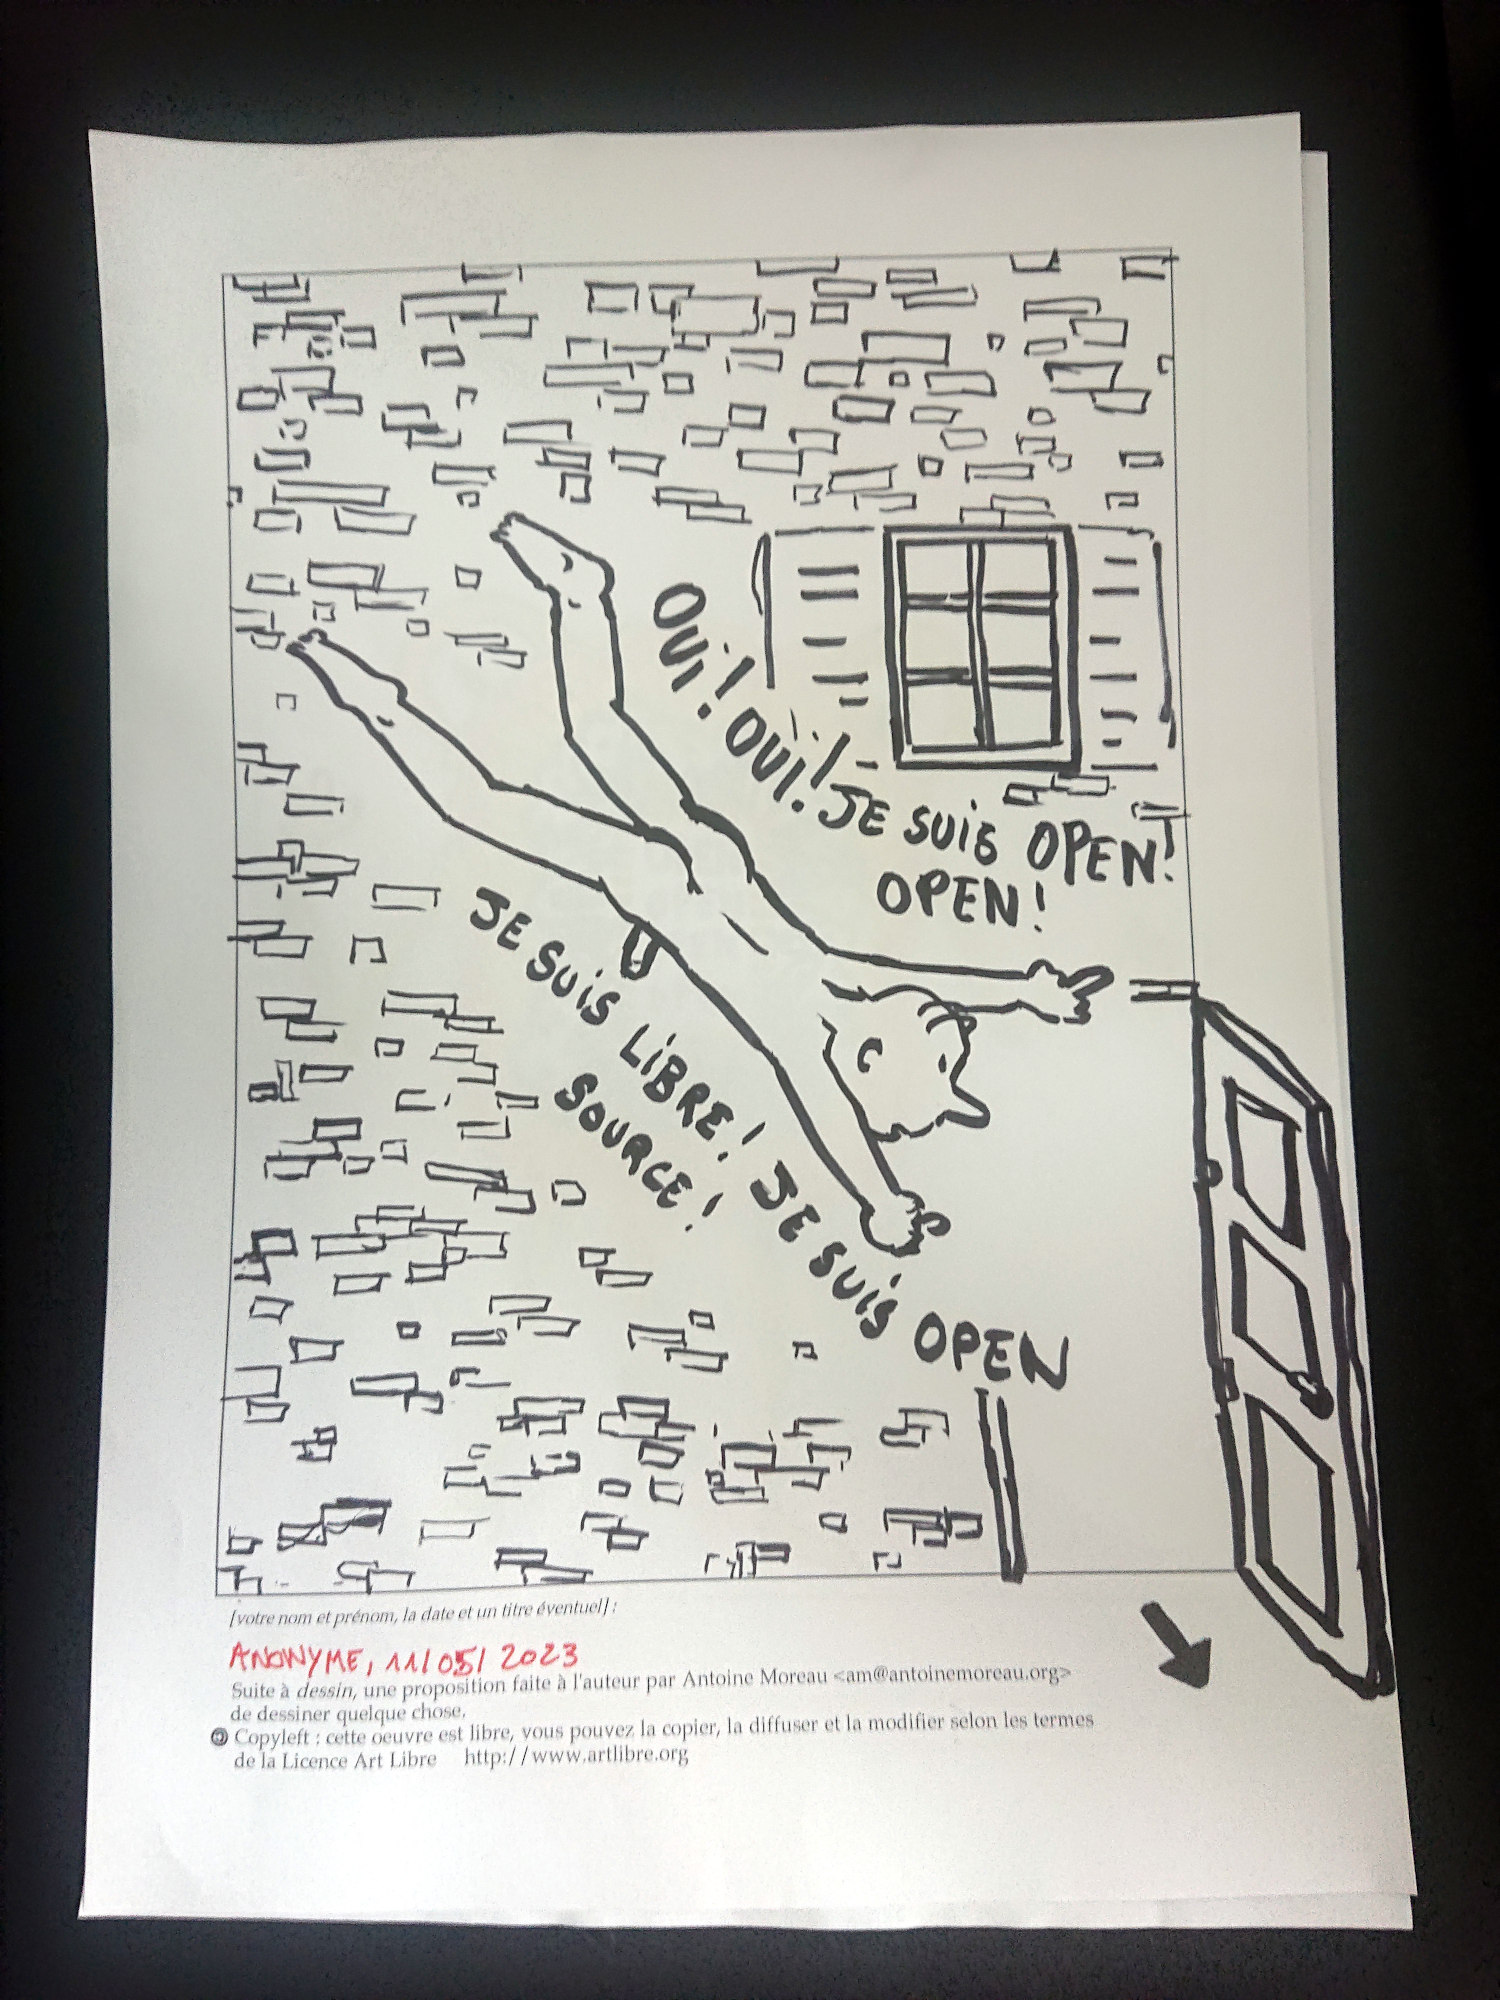 OUI! OUI! JE SUIS OPEN!
OPEN!
JE SUIS LIBRE! JE SUIS OPEN
SOURCE!
[votre nom et prénom, la date et un titre éventuel] :
ANONYME, 11/05/2023
Suite à dessin, une proposition faite à l'auteur par Antoine Moreau <am@antoinemoreau.org>
de dessiner quelque chose.
Copyleft : cette oeuvre est libre, vous pouvez la copier, la diffuser et la modifier selon les termes
de la Licence Art Libre http://www.artlibre.org